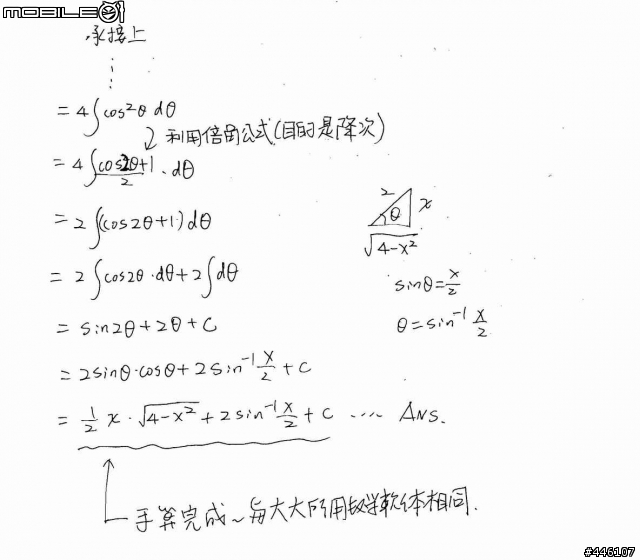 MOBILE01
承接上
⋮
= 4∫cos²θ dθ
利用倍角公式(目的是降次)
= 4∫(cos2θ+1)/2 · dθ
= 2∫(cos2θ+1)dθ
= 2∫cos2θ·dθ+2∫dθ
= sin2θ+2θ+C
= 2sinθ·cosθ+2sin⁻¹ x/2 + C
= 1/2 x·√4-x² + 2sin⁻¹ x/2 + C .... Ans.
2 θ x
√4-x²
sinθ = x/2
θ = sin⁻¹ x/2
手算完成~每大大所用数学軟体相同.
#446107